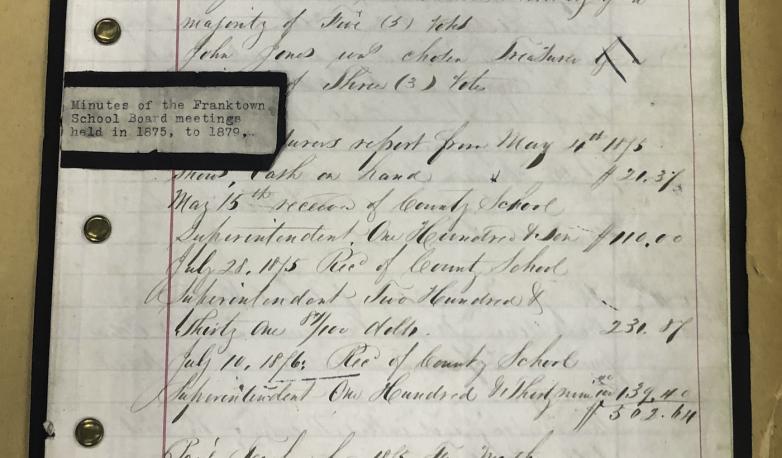 majority of Five (5) Votes
John Jones was chosen Treasurer by a
of Three (3) Votes
Minutes of the Franktown
School Board meetings
held in 1875, to 1879,..
urers report from May 4th 1875
shows, Cash on hand $ 21.37
May 15th receivd of County School
Superintendent. One Hundred & Ten $110.00
July 28, 1875 Recd of County School
Superintendent Two Hundred &
Thirty One 87/100 dolls. 231.87
July 10, 1876; Recd of County School
Superintendent One Hundred & Thirty nine 139.40
$ 502.64